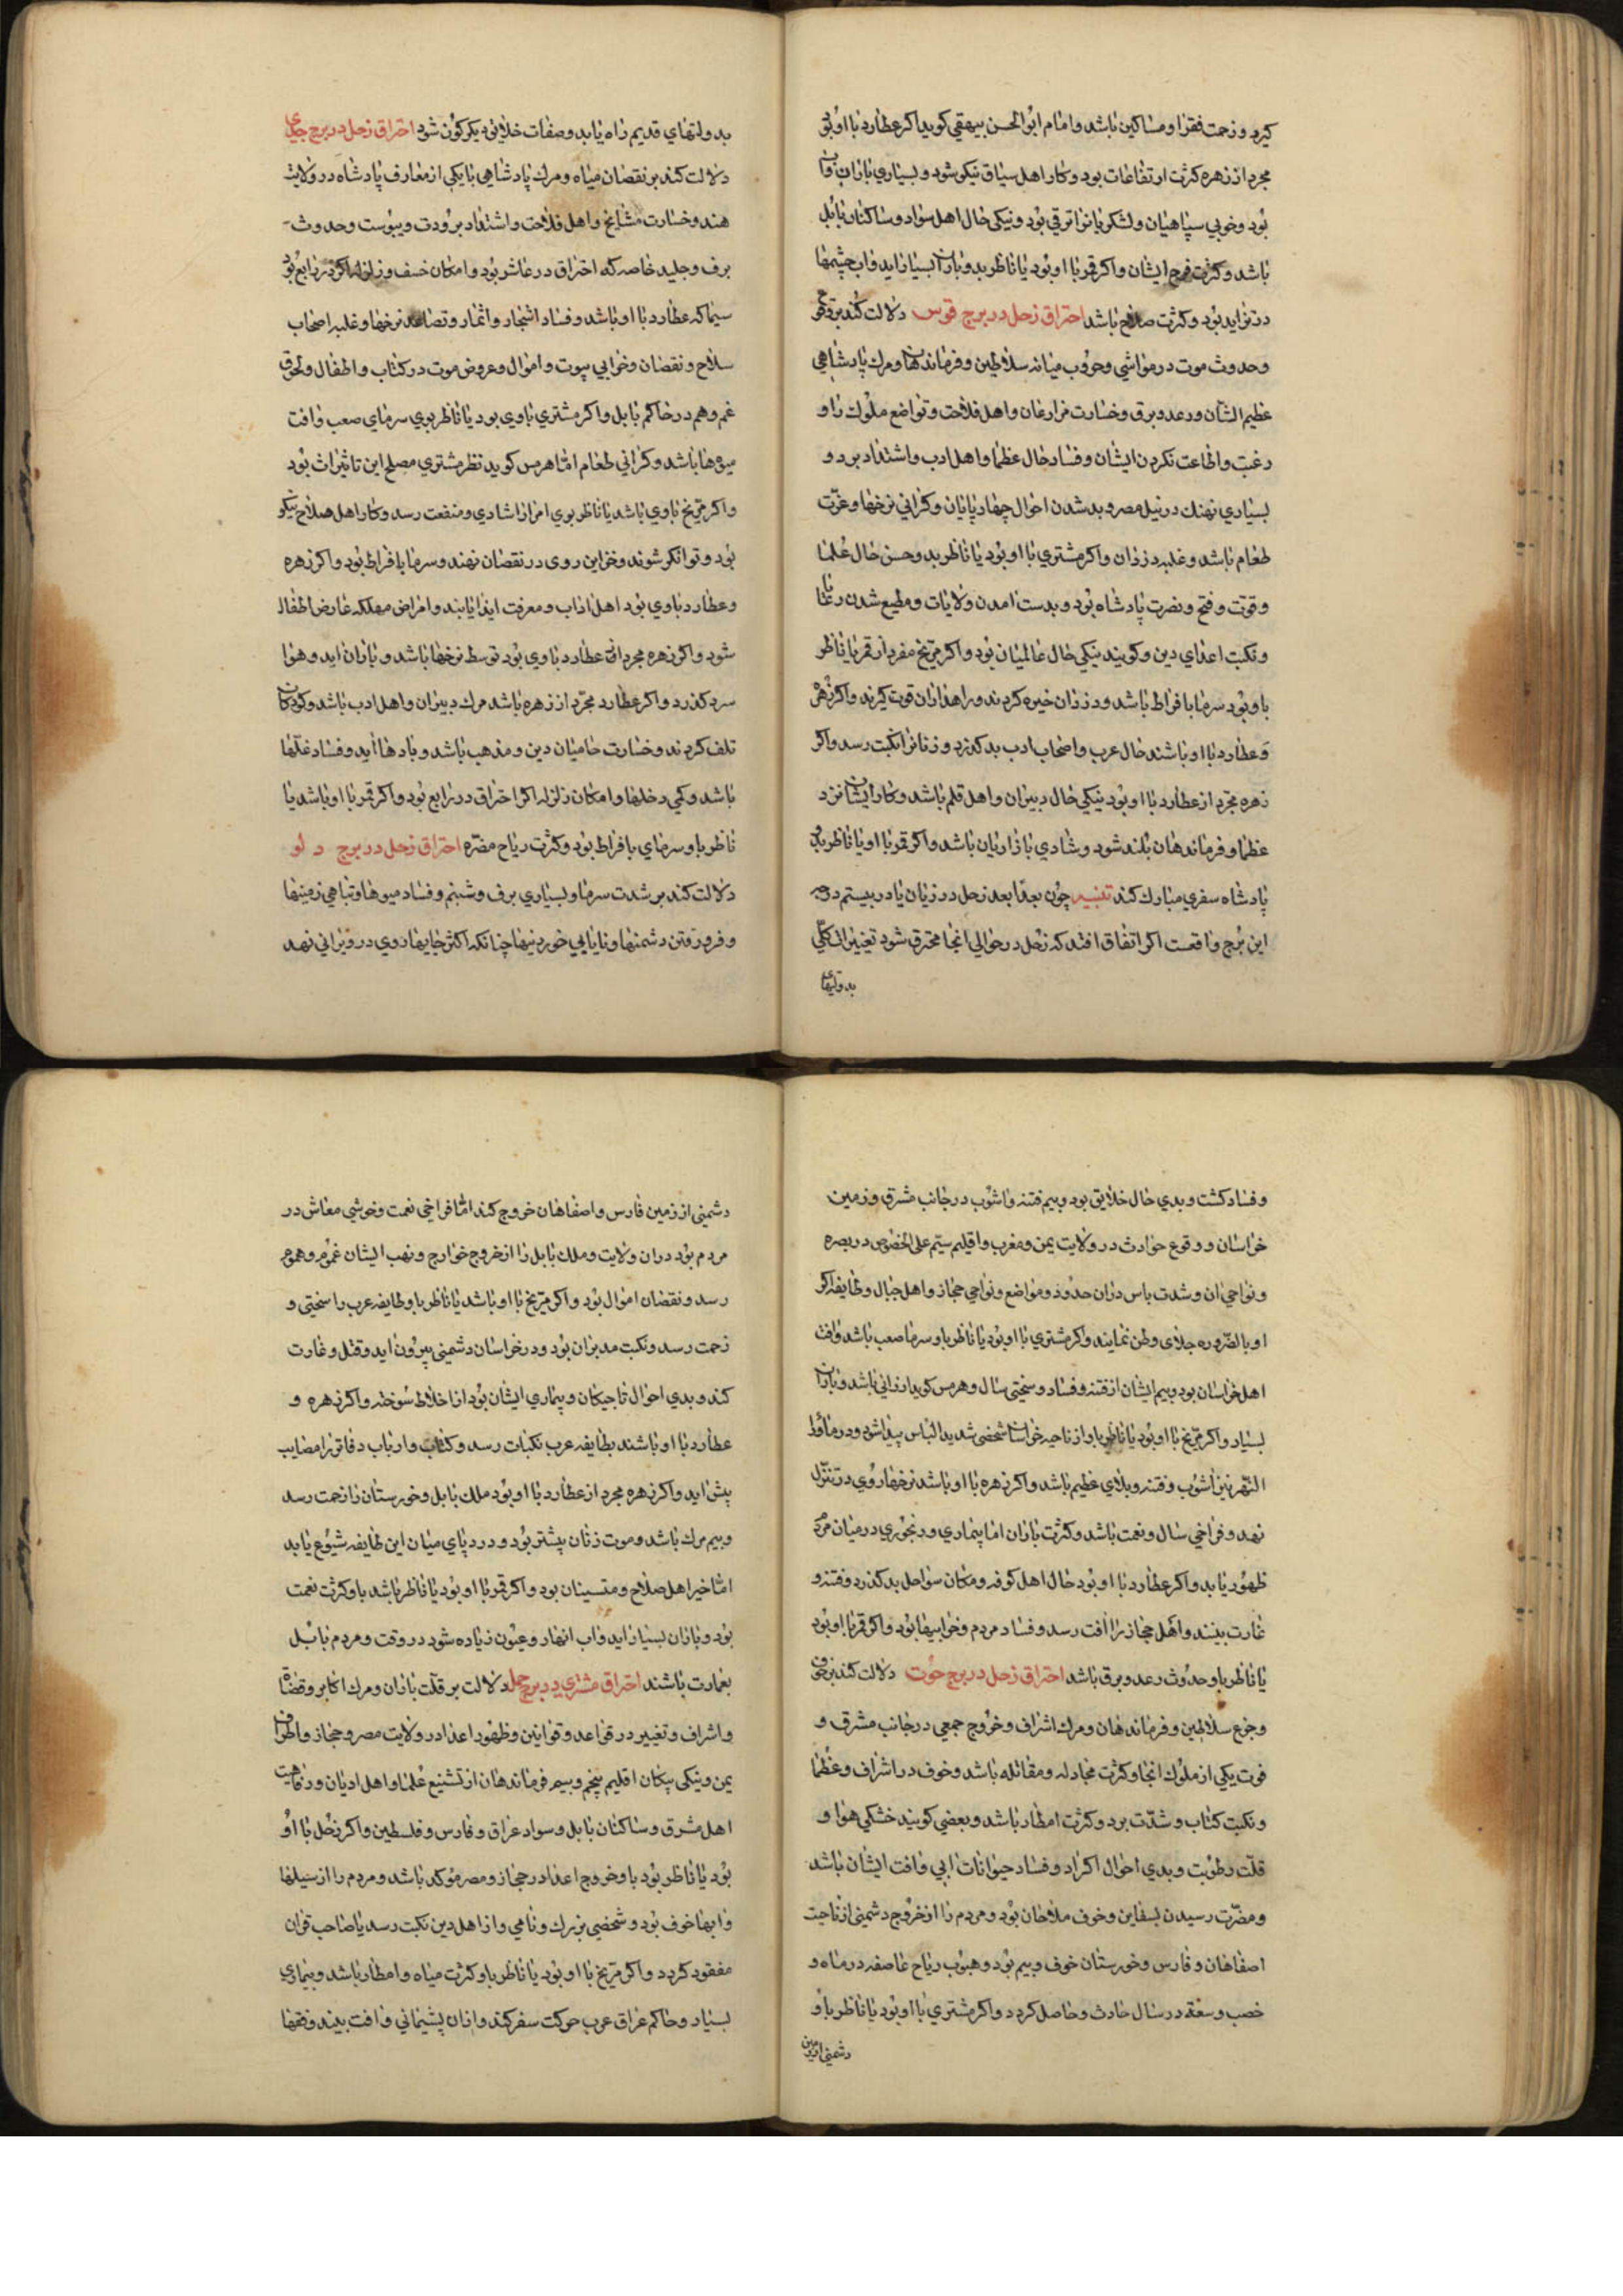 کیرد و زحمت فقرا و مساکین باشد و امام ابو الحسن بیهقی کوید اکر عطارد با او بود
مجرد از زهره کثرت ارتفاعات بود و کار اهل سیاق نیکو شود و بسیاری باران
بود و خوبی سپاهیان و لشکریانرا ترقی بود و نیکی حال اهل سواد و ساکنان بابل
باشد و کثرت فرح ایشان و اکر قمر با او بود یا ناظر بدو باران بسیار اید و اب چشمها
در تزاید بود و کثرت باشد احتراق زحل در برج قوس دلالت کند بر
و حدوث موت در مواشی و حروب میانه سلاطین و فرماندهان و مرك پادشاهی
عظیم الشان و رعد و برق و خسارت مزارعان و اهل فلاحت و تواضع ملوك را و
رغبت و اطاعت نکردن ایشان و فساد حال عظما و اهل ادب و اشتداد برد و
بسیاری نهنك در نیل مصر و بد شدن احوال چهارپایان و کرانی نرخها و عزت
طعام باشد و غلبه دزدان و اکر مشتری با او بود یا ناظر بد و حسن حال علما
و قوت و فتح و نصرت پادشاه بود و بدست امدن ولایات و مطیع شدن رعایا
و نکبت اعدای دین و کویند نیکی حال عالمیان بود و اکر مریخ مفرد از قمر یا ناظر
باو بود سرما بافراط باشد و دزدان خیره کردند و راهداران قوت کیرند و اکر زهره
و عطارد با او باشند حال عرب و اصحاب ادب بد کذرد و زنانرا نکبت رسد و اکر
زهره مجرد از عطارد با او بود نیکی حال دبیران و اهل قلم باشد و کار ایشان نزد
عظما و فرماندهان بلند شود و شادی بازاریان باشد و اکر قمر با او یا ناظر بدو
پادشاه سفری مبارك کند تنبیه چون بعد ابعد زحل در زیان یا در بیستم درجه
این برج واقعست اکر اتفاق افتد که زحل در حوالی انجا محترق شود تغییرات کلی
بدولتهای
بدولتهای قدیم راه یابد و صفات خلایق دیکرکون شود احتراق زحل در برج جدی
دلالت کند بر نقصان میاه و مرك پادشاهی یا یکی از معارف پادشاه در ولایت
هند و خسارت مشایخ و اهل فلاحت و اشتداد برودت و یبوست و حدوث
برف و جلید خاصه که احتراق در عاشر بود و امکان خسف و زلزله اکر در رابع بود
سیما که عطارد با او باشد و فساد اشجار و اثمار و تصاعد نرخها و غلبه اصحاب
سلاح و نقصان و خرابی بیوت و اموال و عروض موت در کتاب و اطفال و لحوق
غم و هم در حاکم بابل و اکر مشتری باوی بود یا ناظر بوی سرمای صعب و افت
میوها باشد و کرانی طعام اما هرمس کوید نظر مشتری مصلح این تاثیرات بود
و اکر مریخ باوی باشد یا ناظر بوی امرا را شادی و منفعت رسد و کار اهل صلاح نیکو
بود و توانکر شوند و خزاین روی در نقصان نهند و سرما بافراط بود و اکر زهره
و عطارد باوی بود اهل اداب و معرفت ایذا یابند و امراض مهلکه عارض اطفال
شود و اکر زهره مجرد از عطارد باوی بود توسط نرخها باشد و باران اید و هوا
سرد کذرد و اکر عطارد مجرد از زهره باشد مرك دبیران و اهل ادب باشد و کودکان
تلف کردند و خسارت حامیان دین و مذهب باشد و بادها اید و فساد غلها
باشد و کمی دخلها و امکان زلزله اکر احتراق در رابع بود و اکر قمر با او باشد یا
ناظر باو سرمای بافراط بود و کثرت ریاح مضره احتراق زحل در برج دلو
دلالت کند بر شدت سرما و بسیاری برف و شبنم و فساد میوها و تباهی زمینها
و فرو رفتن دشمنها و نایابی خوردنیها چنانکه اکثر جایها روی در ویرانی نهد
و فساد کشت و بدی حال خلایق بود و بیم فتنه و اشوب در جانب مشرق و زمین
خراسان و وقوع حوادث در ولایت یمن و مغرب و اقلیم سیم علی الخصوص در بصره
و نواحی ان و شدت باس دران حدود و مواضع و نواحی حجاز و اهل جبال و طایفه اکر
او بالضروره جلای وطن نمایند و اکر مشتری با او بود یا ناظر باو سرما صعب باشد و افت
اهل خراسان بود و بیم ایشان از فتنه و فساد و سختی سال و هرمس کوید ارزانی باشد و باران
بسیار و اکر مریخ با او بود یا ناظر باو از ناحیه خراسان شخصی شدید الباس پیدا شود و در ماورا
النهر نیز اشوب و فتنه و بلای عظیم باشد و اکر زهره با او باشد نرخها روی در تنزل
نهد و فراخی سال و نعمت باشد و کثرت باران اما بیماری و رنجوری در میان مردم
ظهور یابد و اکر عطارد با او بود حال اهل کوفه و مکان سواحل بد کذرد و فتنه و
غارت بینند و اهل حجاز را افت رسد و فساد مردم و خرابیها بود و اکر قمر با او بود
یا ناظر باو حدوث رعد و برق باشد احتراق زحل در برج حوت دلالت کند بر خوف
و جزع سلاطین و فرماندهان و مرك اشراف و خروج جمعی در جانب مشرق و
فوت یکی از ملوك انجا و کثرت مجادله و مقاتله باشد و خوف در اشراف و عظما
و نکبت کتاب و شدت برد و کثرت امطار باشد و بعضی کویند خشکی هوا و
قلت رطوبت و بدی احوال اکراد و فساد حیوانات ابی و افت ایشان باشد
و مضرت رسیدن بسفاین و خوف ملاحان بود و مردم را از خروج دشمنی از ناحیت
اصفاهان و فارس و خورستان خوف و بیم بود و هبوب ریاح عاصفه در ماه و
خصب و سعة در سال حادث و حاصل کردد و اکر مشتری با او بود یا ناظر باو
دشمنی از زمین
دشمنی از زمین فارس و اصفاهان خروج کند اما فراخی نعمت و خوشی معاش در
مردم بود دران ولایت و ملك بابل را از خروج خوارج و نهب ایشان غموم و هموم
رسد و نقصان اموال بود و اکر مریخ با او باشد یا ناظر باو طایفه عرب را سختی و
زحمت رسد و نکبت مدبران بود و در خراسان دشمنی بیرون اید و قتل و غارت
کند و بدی احوال تاجیکان و بیماری ایشان بود از اخلاط سوخته و اکر زهره و
عطارد با او باشند بطایفه عرب نکبات رسد و کتاب و ارباب دفاتر را مصایب
پیش اید و اکر زهره مجرد از عطارد با او بود ملك بابل و خورستان را زحمت رسد
و بیم مرك باشد و موت زنان بیشتر بود و درد پای میان این طایفه شیوع یابد
اما خیر اهل صلاح و متسینان بود و اکر قمر با او بود یا ناظر باشد باو کثرت نعمت
بود و باران بسیار اید و اب انهار و عیون زیاده شود در وقت و مردم بابل
بعمارت باشند احتراق مشتری در برج حمل دلالت بر قلت باران و مرك اکابر و قضاة
و اشراف و تغییر در قواعد و قوانین و ظهور اعدا در ولایت مصر و حجاز و اطراف
یمن و نیکی اقلیم پنجم و بیم فرماندهان از تشنیع علما و اهل ادیان و رفاهیت
اهل مشرق و ساکنان بابل و سواد عراق و فارس و فلسطین و اکر زحل با او
بود یا ناظر بود باو خروج اعدا در حجاز و مصر موکد باشد و مردم را از سیلها
و ابها خوف بود و شخصی بزرك و نامی و از اهل دین نکبت رسد یا صاحب قران
مفقود کردد و اکر مریخ با او بود یا ناظر باو کثرت میاه و امطار باشد و بیماری
بسیار و حاکم عراق عرب حرکت سفر کند و ازان پشیمانی و افت بیند و فتنها